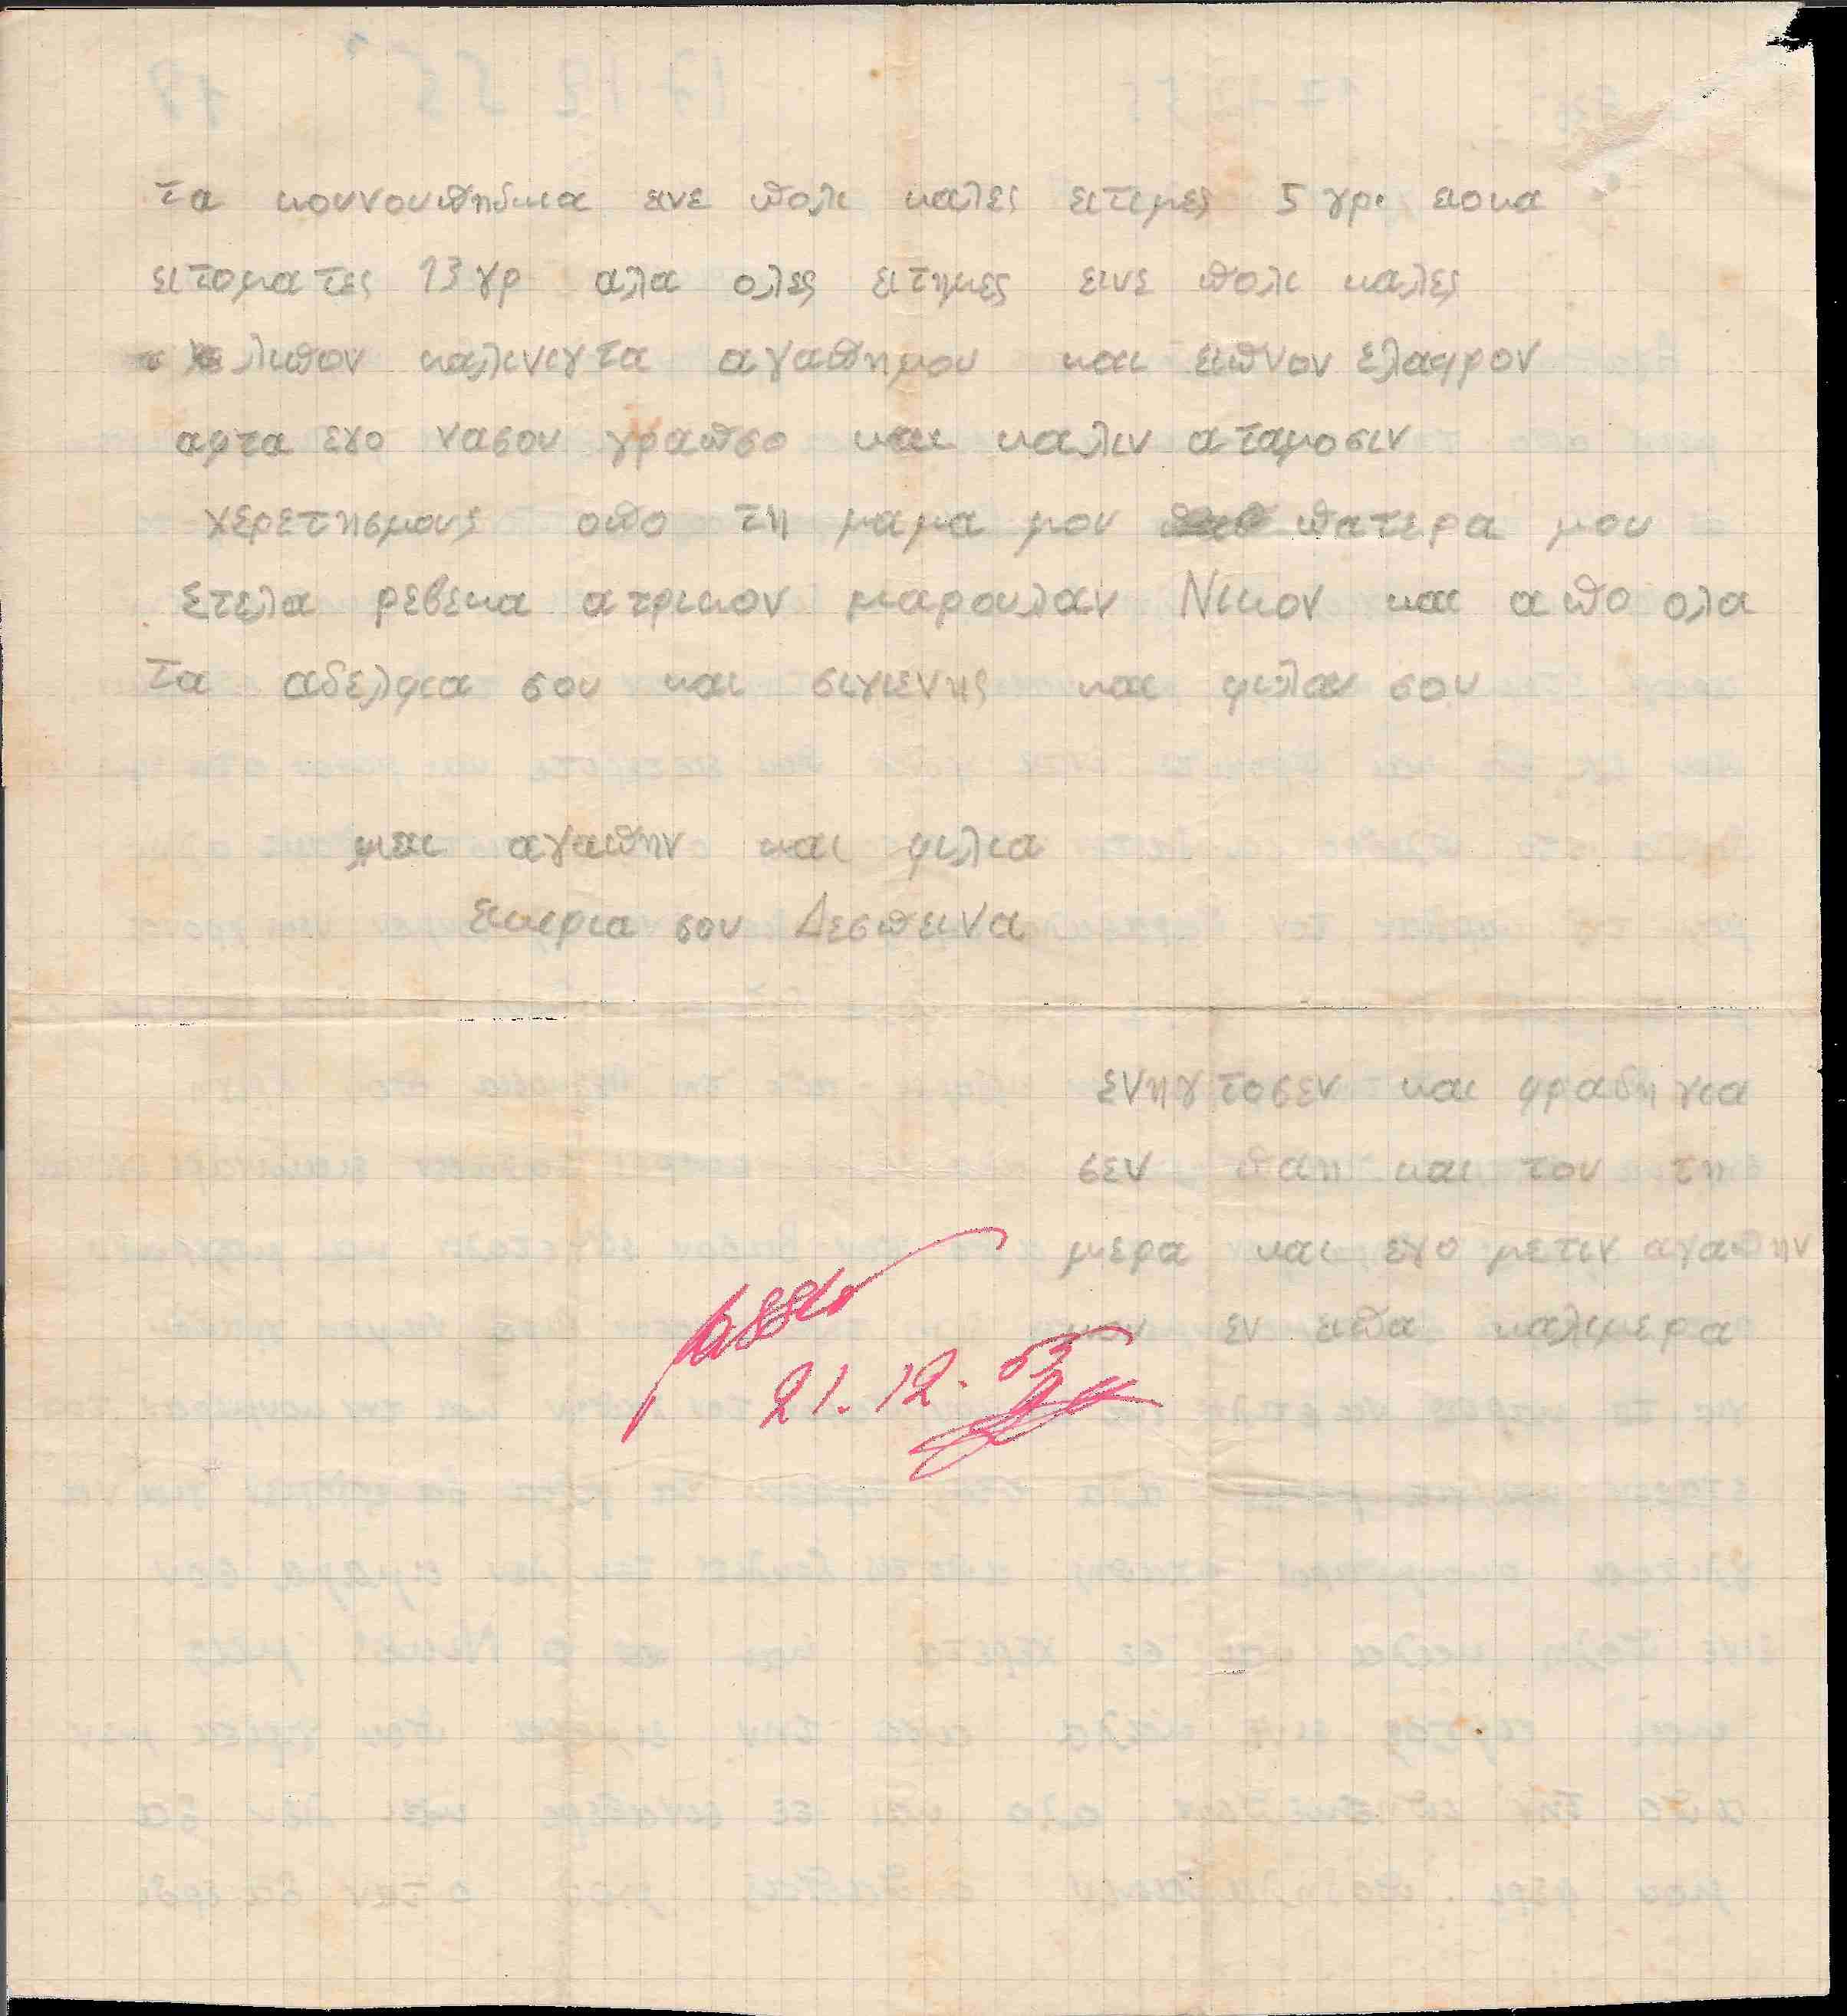 τα κουνουπηδκια εινε πολι καλες ειτιμες 5 γρι εισκα
ειτοματες 13 γρ αλα ολες ειτημες εινε πολι καλες
λιπον καλινιγτα αγαπημου και ειπνον ελαφρον
αφτα εγο νασου γραπσο και καλιν αταμοσιν
χερετησμους οπο τη μαμα μου πατερα μου
Στελα ρεβεκα ατρικον μαρουλαν Νικον και απο ολα
Τα αδελφια σου και σιγιενης και φιλαν σου
με αγαπην και φιλια
εικιρια σου Δεσπεινα
ενηγτοσεν και φραδη για
σεν παη και του τη
μερα και εγο μετιν αγαπην
μου εν ειπα καλιμερα
passed
21.12.55